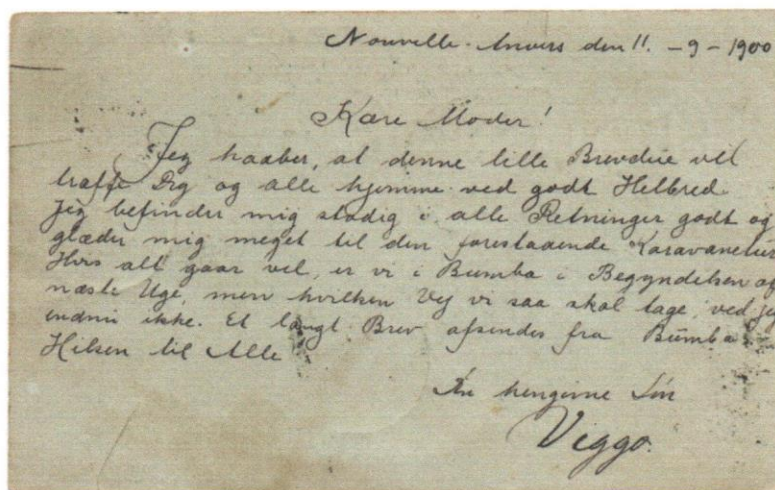 Nouvelle-Anvers den 11.-9-1900
Kære Moder!
Jeg haaber, at denne lille Brevdue vil
træffe Dig og alle hjemme ved godt Helbred.
Jeg befinder mig stadig i alle Retninger godt og
glæder mig meget til den forestaaende Karavanetur
Hvis alt gaar vel, er vi i Bumba i Begyndelsen af
næste Uge, men hvilken Vej vi saa skal tage, ved jeg
endnu ikke. Et langt Brev afsendes fra Bumba.
Hilsen til Alle
hengivne Søn
Viggo.